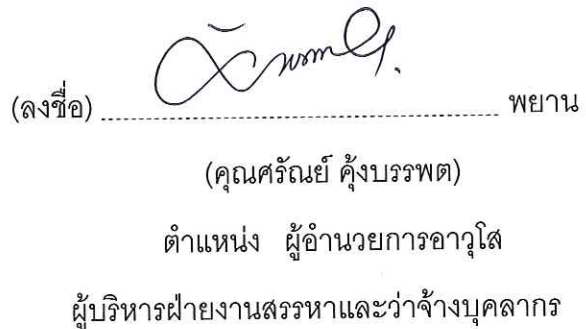 (ลงชื่อ) ........................................ พยาน
(คุณศรัณย์ คุ้งบรรพต)
ตำแหน่ง ผู้อำนวยการอาวุโส
ผู้บริหารฝ่ายงานสรรหาและว่าจ้างบุคลากร